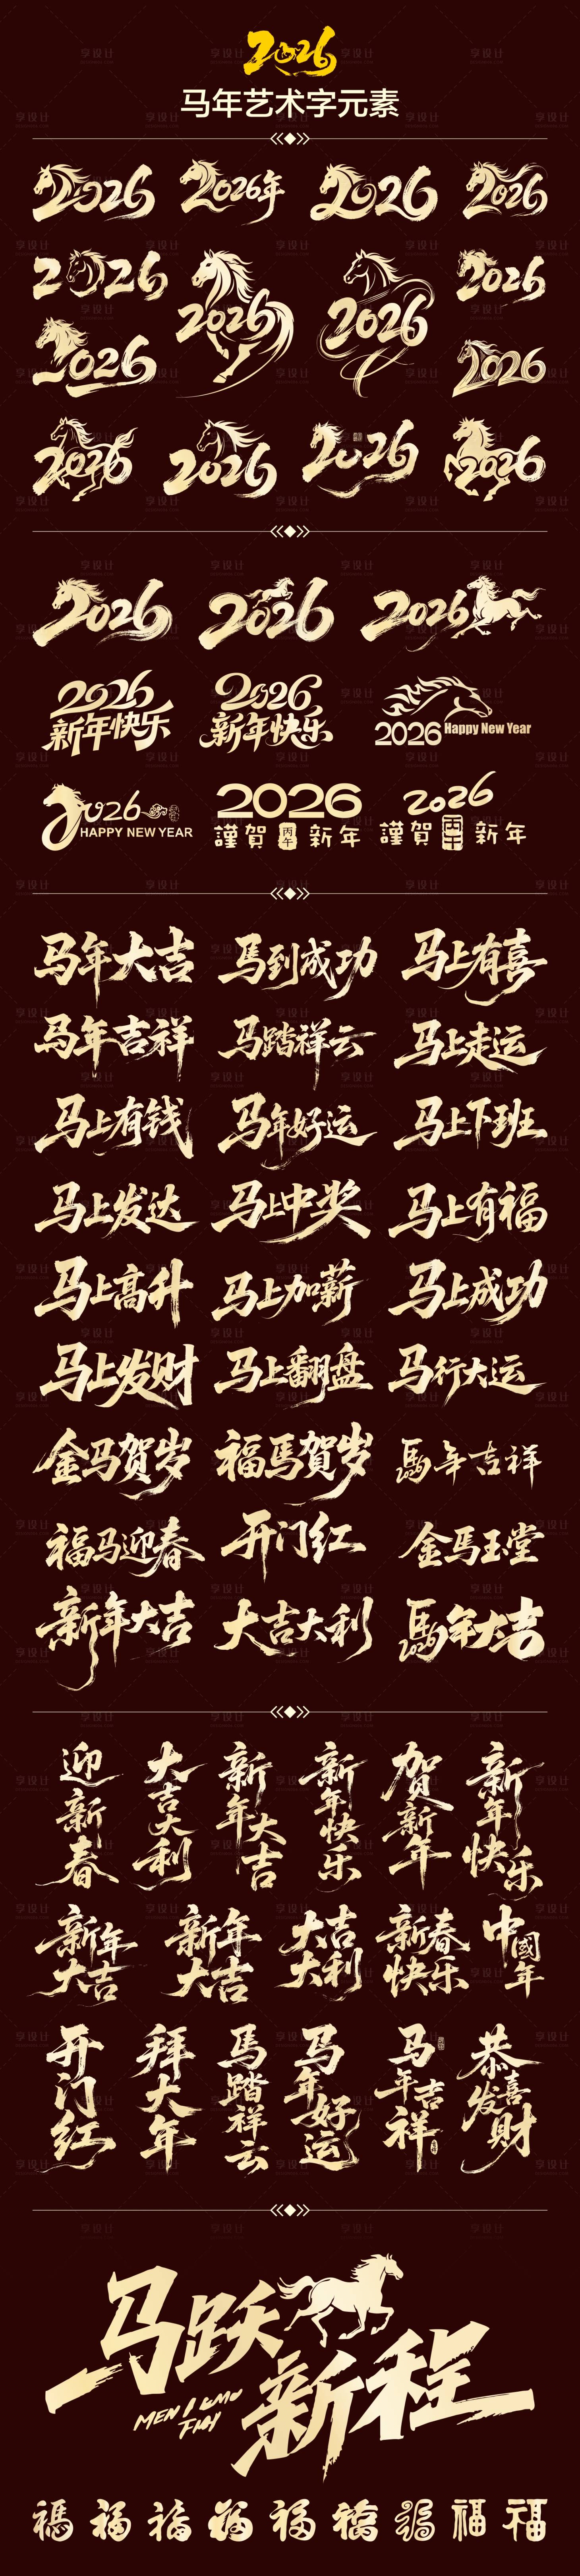 2026
马年艺术字元素
2026 2026年 2026 2026
2026 2026 2026 2026
2026 2026
2026 2026 2026 2026
2026 2026 2026
2026 2026
新年快乐 新年快乐
2026 Happy New Year
2026
HAPPY NEW YEAR
2026
謹賀 丙午 新年
2026
謹賀 丙午 新年
马年大吉 馬到成功 马上有喜
馬年吉祥 马踏祥云 马上走运
马上有钱 马年好运 马上下班
马上发达 马上中奖 马上有福
马上高升 马上加薪 马上成功
马上发财 马上翻盘 马行大运
金马贺岁 福馬贺岁 馬年吉祥 2026
福马迎春 开门红 金馬玉堂
新年大吉 大吉大利 馬年大吉 2026
迎新春 大吉大利 新年大吉 新年快乐 贺新年 新年快乐
新年大吉 新年大吉 大吉大利 新春快乐 中國年
开门红 拜大年 馬踏祥云 马年好运 马年吉祥 恭喜发财
马跃
新程
福 福 福 福 福 福 福 福 福
享设计